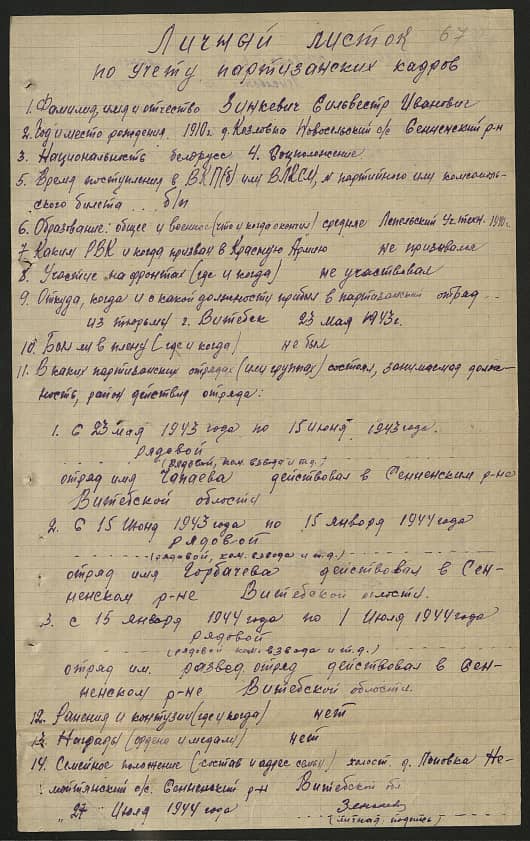 Личный листок 67
по учету партизанских кадров
1. Фамилия, имя и отчество Зинкевич Сильвестр Иванович
2. Год и место рождения. 1910г. д. Козловка Новосельский с/с Сенненский р-н
3. Национальность белорусс 4. Соцположение
5. Время поступления в ВКП(б) или ВЛКСМ, № партийного или комсомоль-
ского билета ... б/п
6. Образование: общее и военное (что и когда окончил) среднее Лепельский
7. Каким РВК и когда призван в Красную Армию не призывался
8. Участие на фронтах (где и когда) не участвовал
9. Откуда, когда и с какой должности прибыл в партизанский отряд ..
из тюрьмы г. Витебск 23 мая 1943г.
10. Был ли в плену (где и когда) не был
11. В каких партизанских отрядах (или группах) состоял, занимаемая долж-
ность, район действия отряда:
1. С 23 мая 1943 года по 15 июня 1943 года.
рядовой
(рядовой, ком. взвода и т.д.)
отряд имя Чапаева действовал в Сенненским р-не
Витебской области
2. С 15 Июня 1943 года по 15 января 1944 года
рядовой
(рядовой, ком. взвода и т.д.)
отряд имя Горбачева действовал в Сен-
ненском р-не Витебской области.
3. с 15 января 1944 года по 1 Июля 1944 года
рядовой
(рядовой ком. взвода и т.д.)
отряд им. развед. отряд действовал в Сен-
ненском р-не Витебской области.
12. Ранения и контузии (где и когда) нет
13. Награды (ордена и медали) нет
14. Семейное положение (состав и адрес семьи) холост. д. Поповка Не-
мойтянский с/с. Сенненский р-н Витебской обл
"27" Июля 1944 года
(личная подпись)